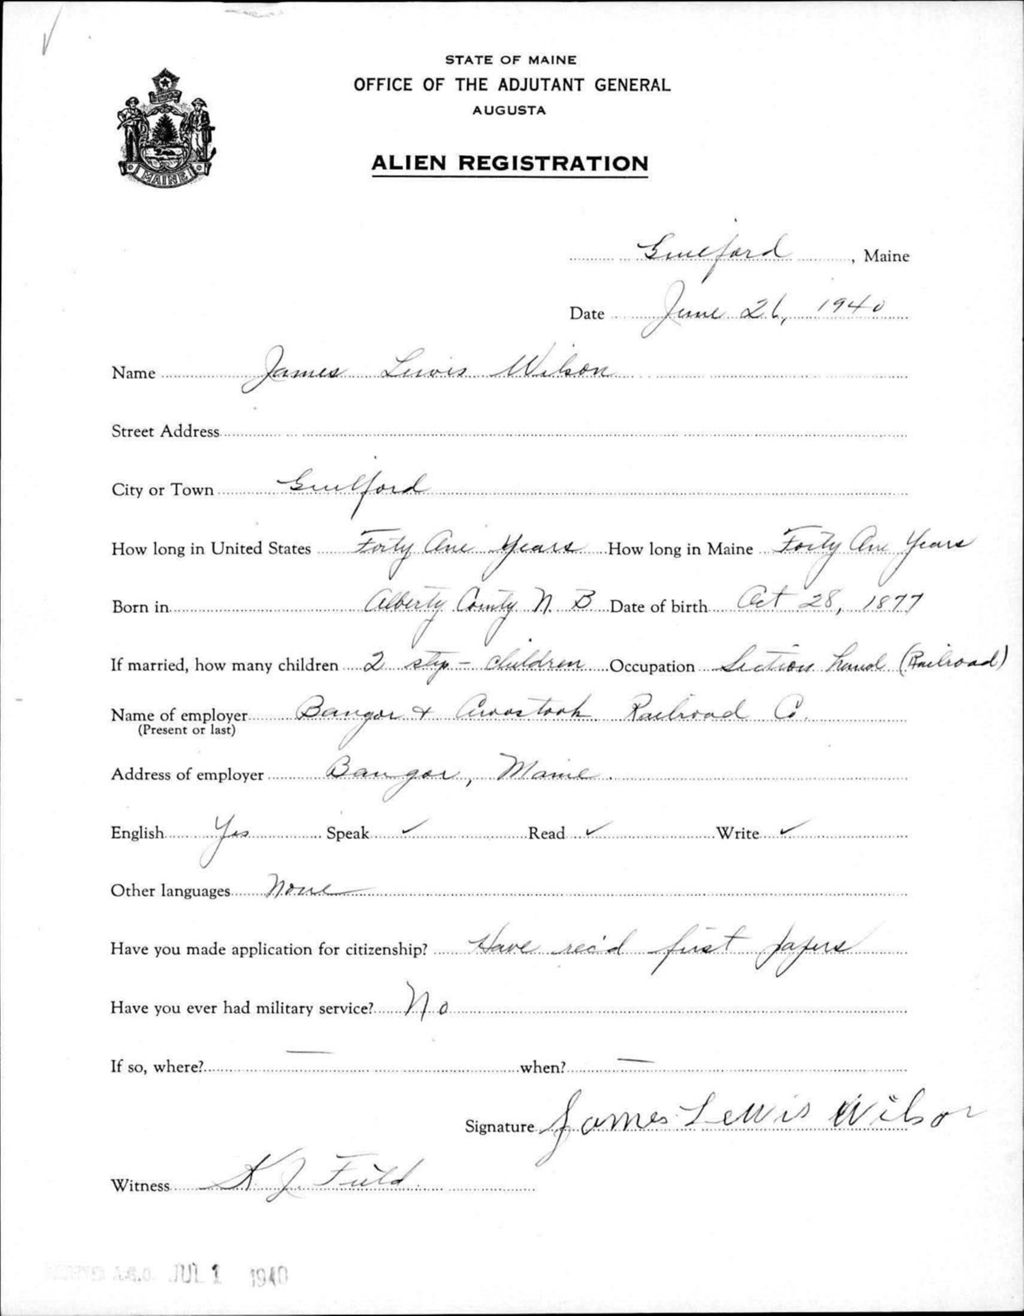 STATE OF MAINE
OFFICE OF THE ADJUTANT GENERAL
AUGUSTA
MAINE
ALIEN REGISTRATION
Guilford, Maine
Date June 26, 1940
Name James Lewis Wilson
Street Address
City or Town Guilford
How long in United States Forty One Years How long in Maine Forty One Years
Born in Alberty County N. B Date of birth Oct 28, 1877
If married, how many children 2 step-children Occupation Section hand (Railroad)
Name of employer Bangor & Aroostook Railroad Co.
(Present or last)
Address of employer Bangor, Maine.
English Yes Speak ✓ Read ✓ Write ✓
Other languages None
Have you made application for citizenship? Have rec'd first papers
Have you ever had military service? No
If so, where? — when? —
Signature James Lewis Wilson
Witness J. Field
A.G.O. JUL 1 1940